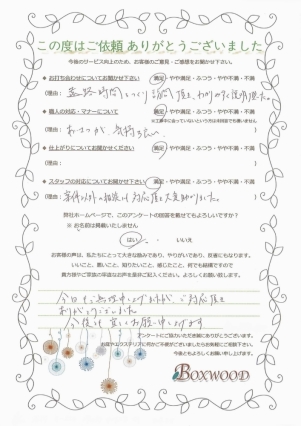 この度はご依頼 ありがとうございました
今後のサービス向上のため、お客様のご意見・ご感想をお聞かせ下さい。
★ お打ち合わせについてお聞かせ下さい 満足・やや満足・ふつう・やや不満・不満
(理由: 時間 訪問 頂き、わかりやすく説明 )
★ 職人の対応・マナーについて 満足・やや満足・ふつう・やや不満・不満
(理由: あいさつが 気持ち )
★ 仕上がりについてお聞かせください 満足・やや満足・ふつう・やや不満・不満
(理由: )
★ スタッフの対応についてお聞かせ下さい 満足・やや満足・ふつう・やや不満・不満
(理由: 以外の相談に対応頂き大変助かりました。 )
弊社ホームページで、このアンケートの回答を載せてもよろしいですか?
※ お名前は掲載いたしません
はい ・ いいえ
お客様の声は、私たちにとって大きな励みであり、やりがいであり、反省にもなります。
いいこと、悪いこと、知りたいこと、感じたこと、何でも結構ですので
貴方様やご家族の率直なお声を是非ご記入ください。よろしくお願い致します。
ご対応頂き
ありがとうございました
今後とも 宜しくお願い申し上げます
アンケートにご協力いただき誠にありがとうございます。
今後ともよろしくお願い申し上げます。
BOXWOOD